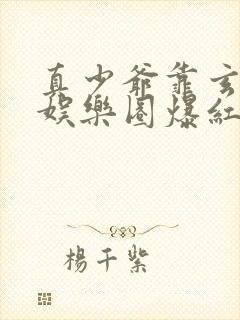 真少爺靠玄
娛樂圈爆紅
楊千紫